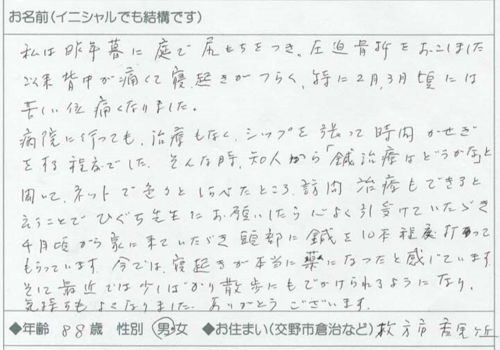 お名前(イニシャルでも結構です)
私は昨年暮に庭で尻もちをつき、圧迫骨折をおこしました
以来背中が痛くて寝起きがつらく、特に2月,3月頃には
苦しい位痛くなりました。
病院に行っても、治療もなく、シップを張って時間かせぎ
をする程度でした。そんな時、知人から「鍼治療はどうかな」と
聞いて、ネットで色々としらべたところ、訪問治療もできると
云うことでひぐち先生にお願いしたら心よく引受けていただき
4月頃から家に来ていただき頭部に鍼を10本程度打って
もらっています。今では、寝起きが本当に薬になったと感じています
そして最近では少しばかり散歩にもでかけられるようになり、
気持ちもよくなりました。ありがとうございます。
◆年齢 88歳 性別 男・女 ◆お住まい(交野市倉治など) 枚方市